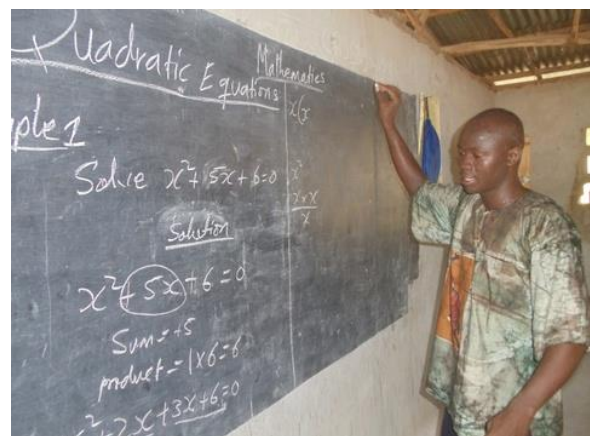 Quadratic Equations
Mathematics
ple 1
Solve x²+5x+6=0
Solution
x²+5x+6=0
Sum=+5
product=1x6=6
x²+2x+3x+6=0
x(x
x²
x×x
x